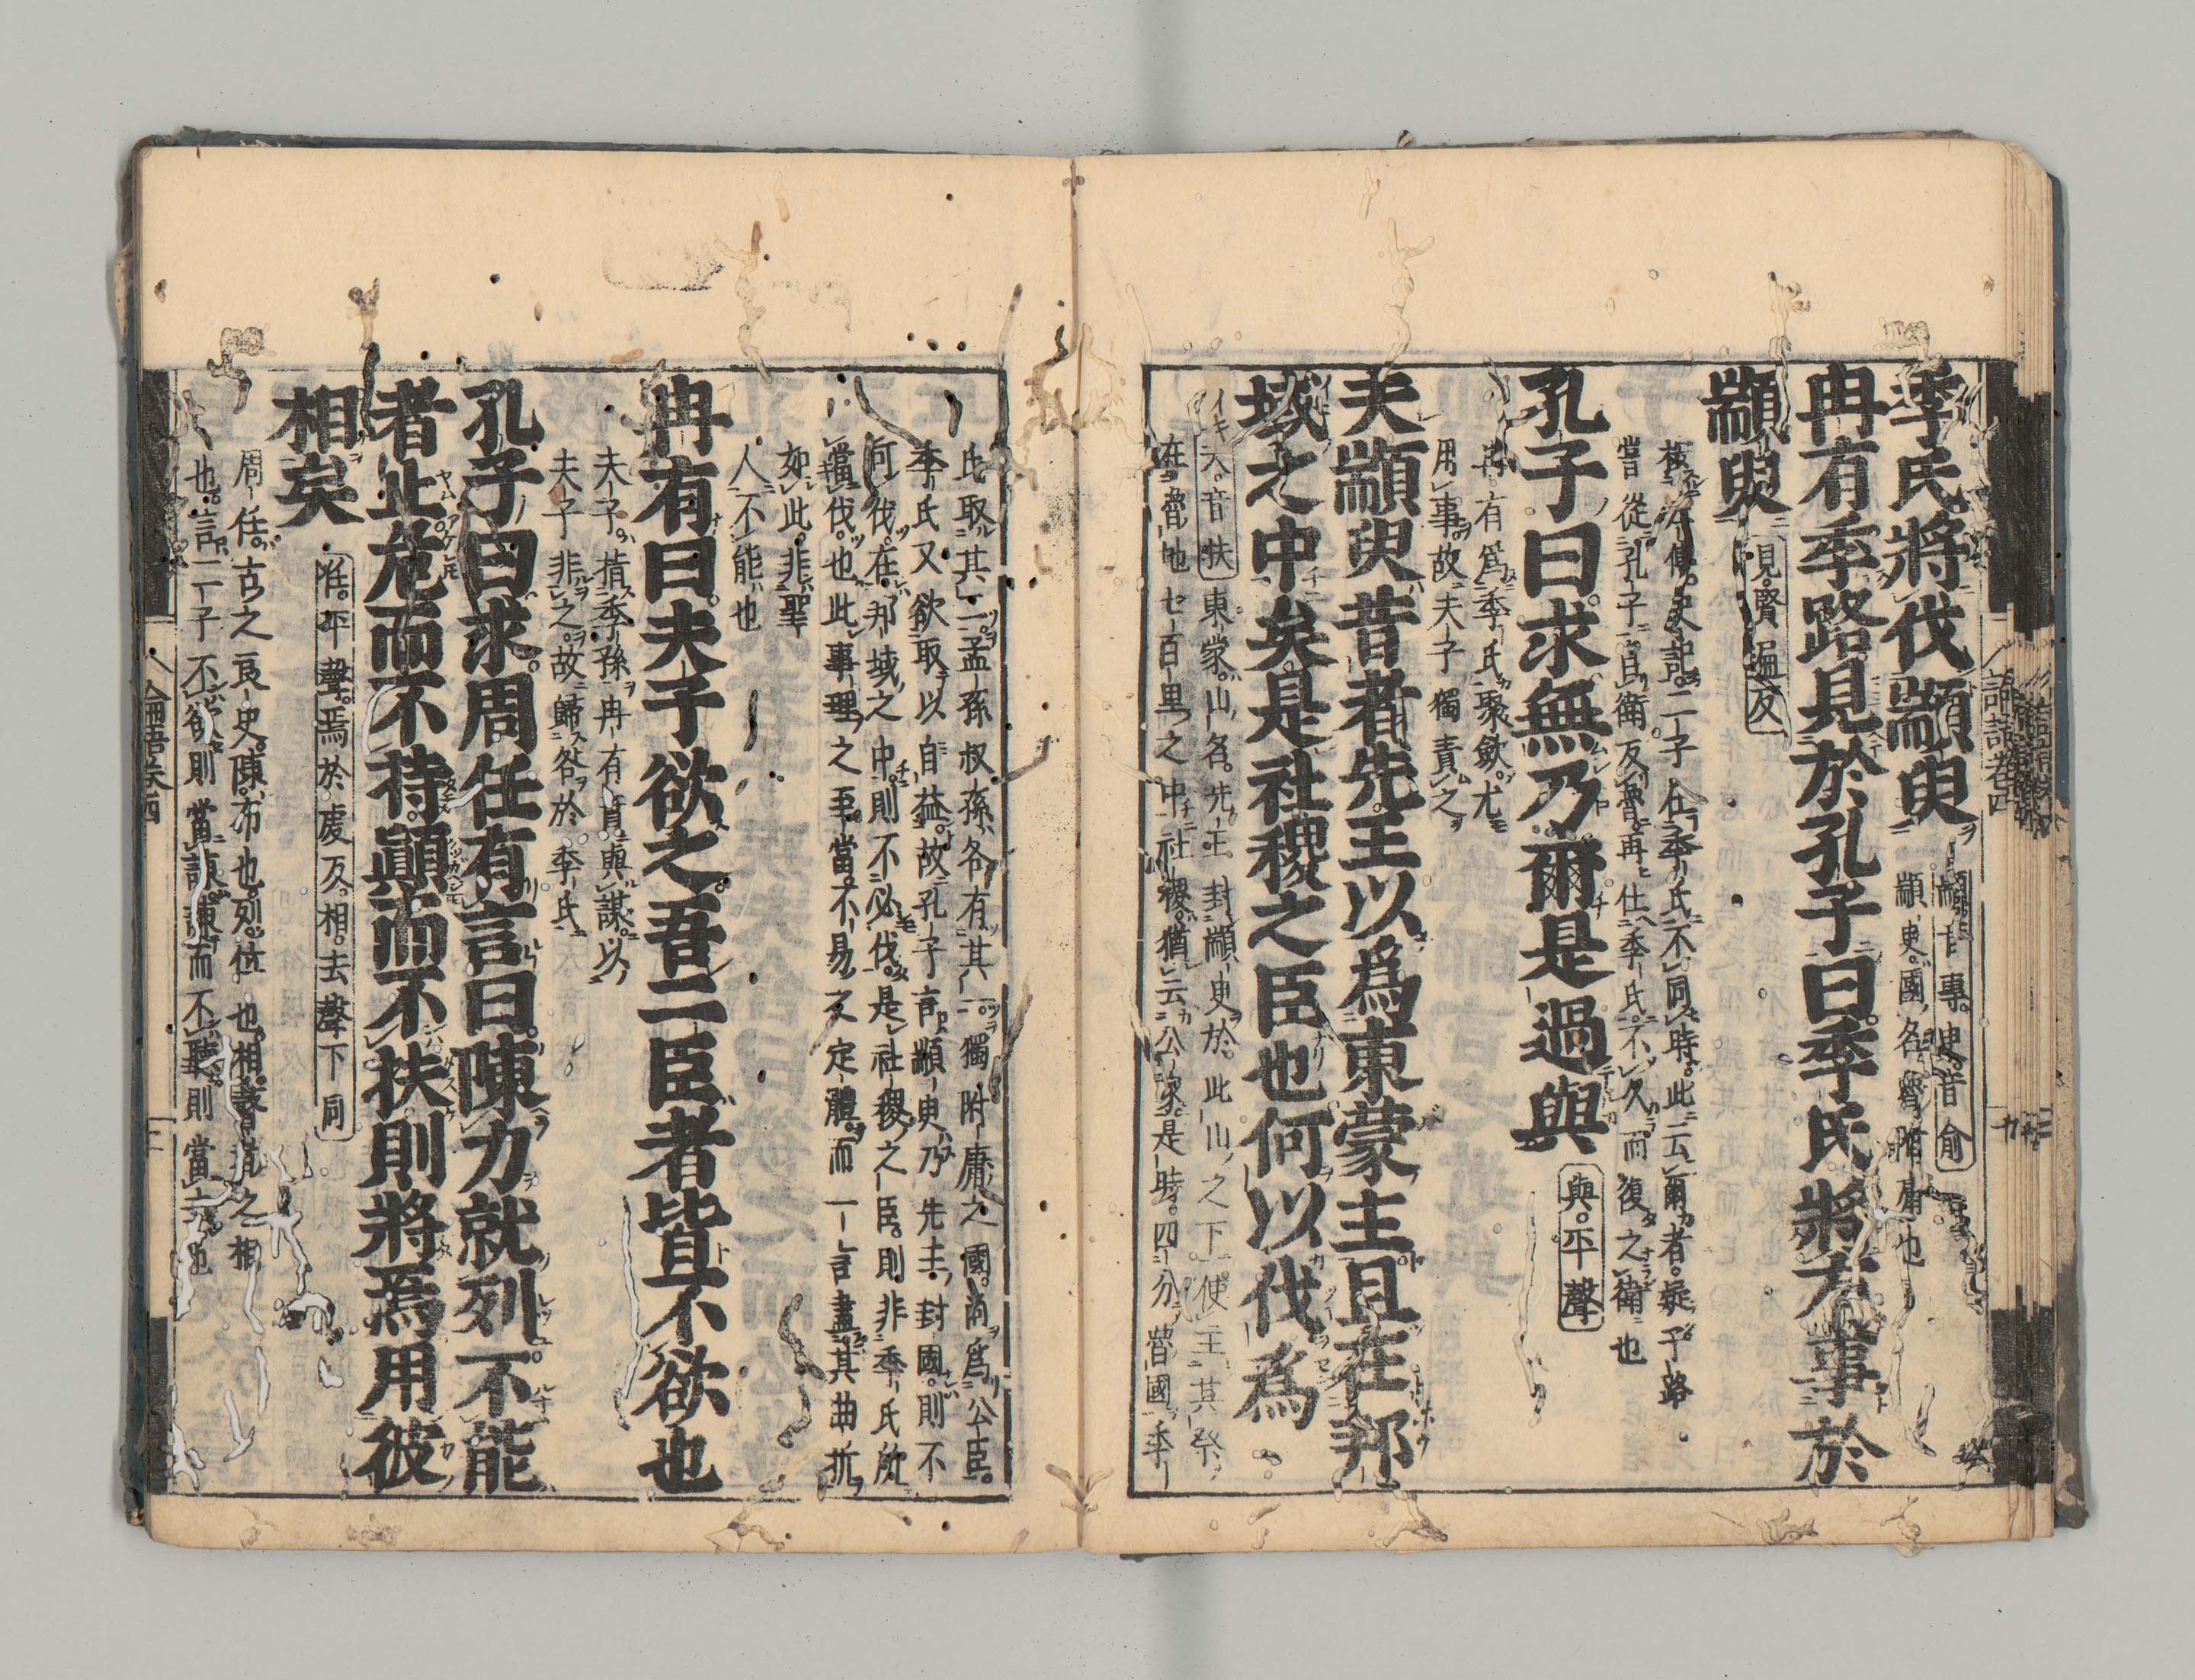 季氏將伐顓臾 顓音專臾音俞
顓臾國名魯附庸也
冉有季路見於孔子曰季氏將有事於
顓臾 見賢遍反
按左傳史記二子仕季氏不同時此云爾者疑子路
嘗從孔子自衛反魯再仕季氏不久而復之衛也
孔子曰求無乃爾是過與 與平聲
冉有爲季氏聚斂尤
用事故夫子獨責之
夫顓臾昔者先王以爲東蒙主且在邦
域之中矣是社稷之臣也何以伐爲
夫音扶 東蒙山名先王封顓臾於此山之下使主其祭
在魯地七百里之中社稷猶云公家是時四分魯國季
論語卷四
氏取其二孟孫叔孫各有其一獨附庸之國尚爲公臣
季氏又欲取以自益故孔子言顓臾乃先王封國則不
可伐在邦域之中則不必伐是社稷之臣則非季氏所
當伐也此事理之至當不易之定體而一言盡其曲折
如此非聖
人不能也
冉有曰夫子欲之吾二臣者皆不欲也
夫子指季孫冉有實與謀以
夫子非之故歸咎於季氏
孔子曰求周任有言曰陳力就列不能
者止危而不持顚而不扶則將焉用彼
相矣 任平聲焉於虔反相去聲下同
周任古之良史陳布也列位也相瞽者之相
也言二子不欲則當諫諫而不聽則當去也
論語卷四